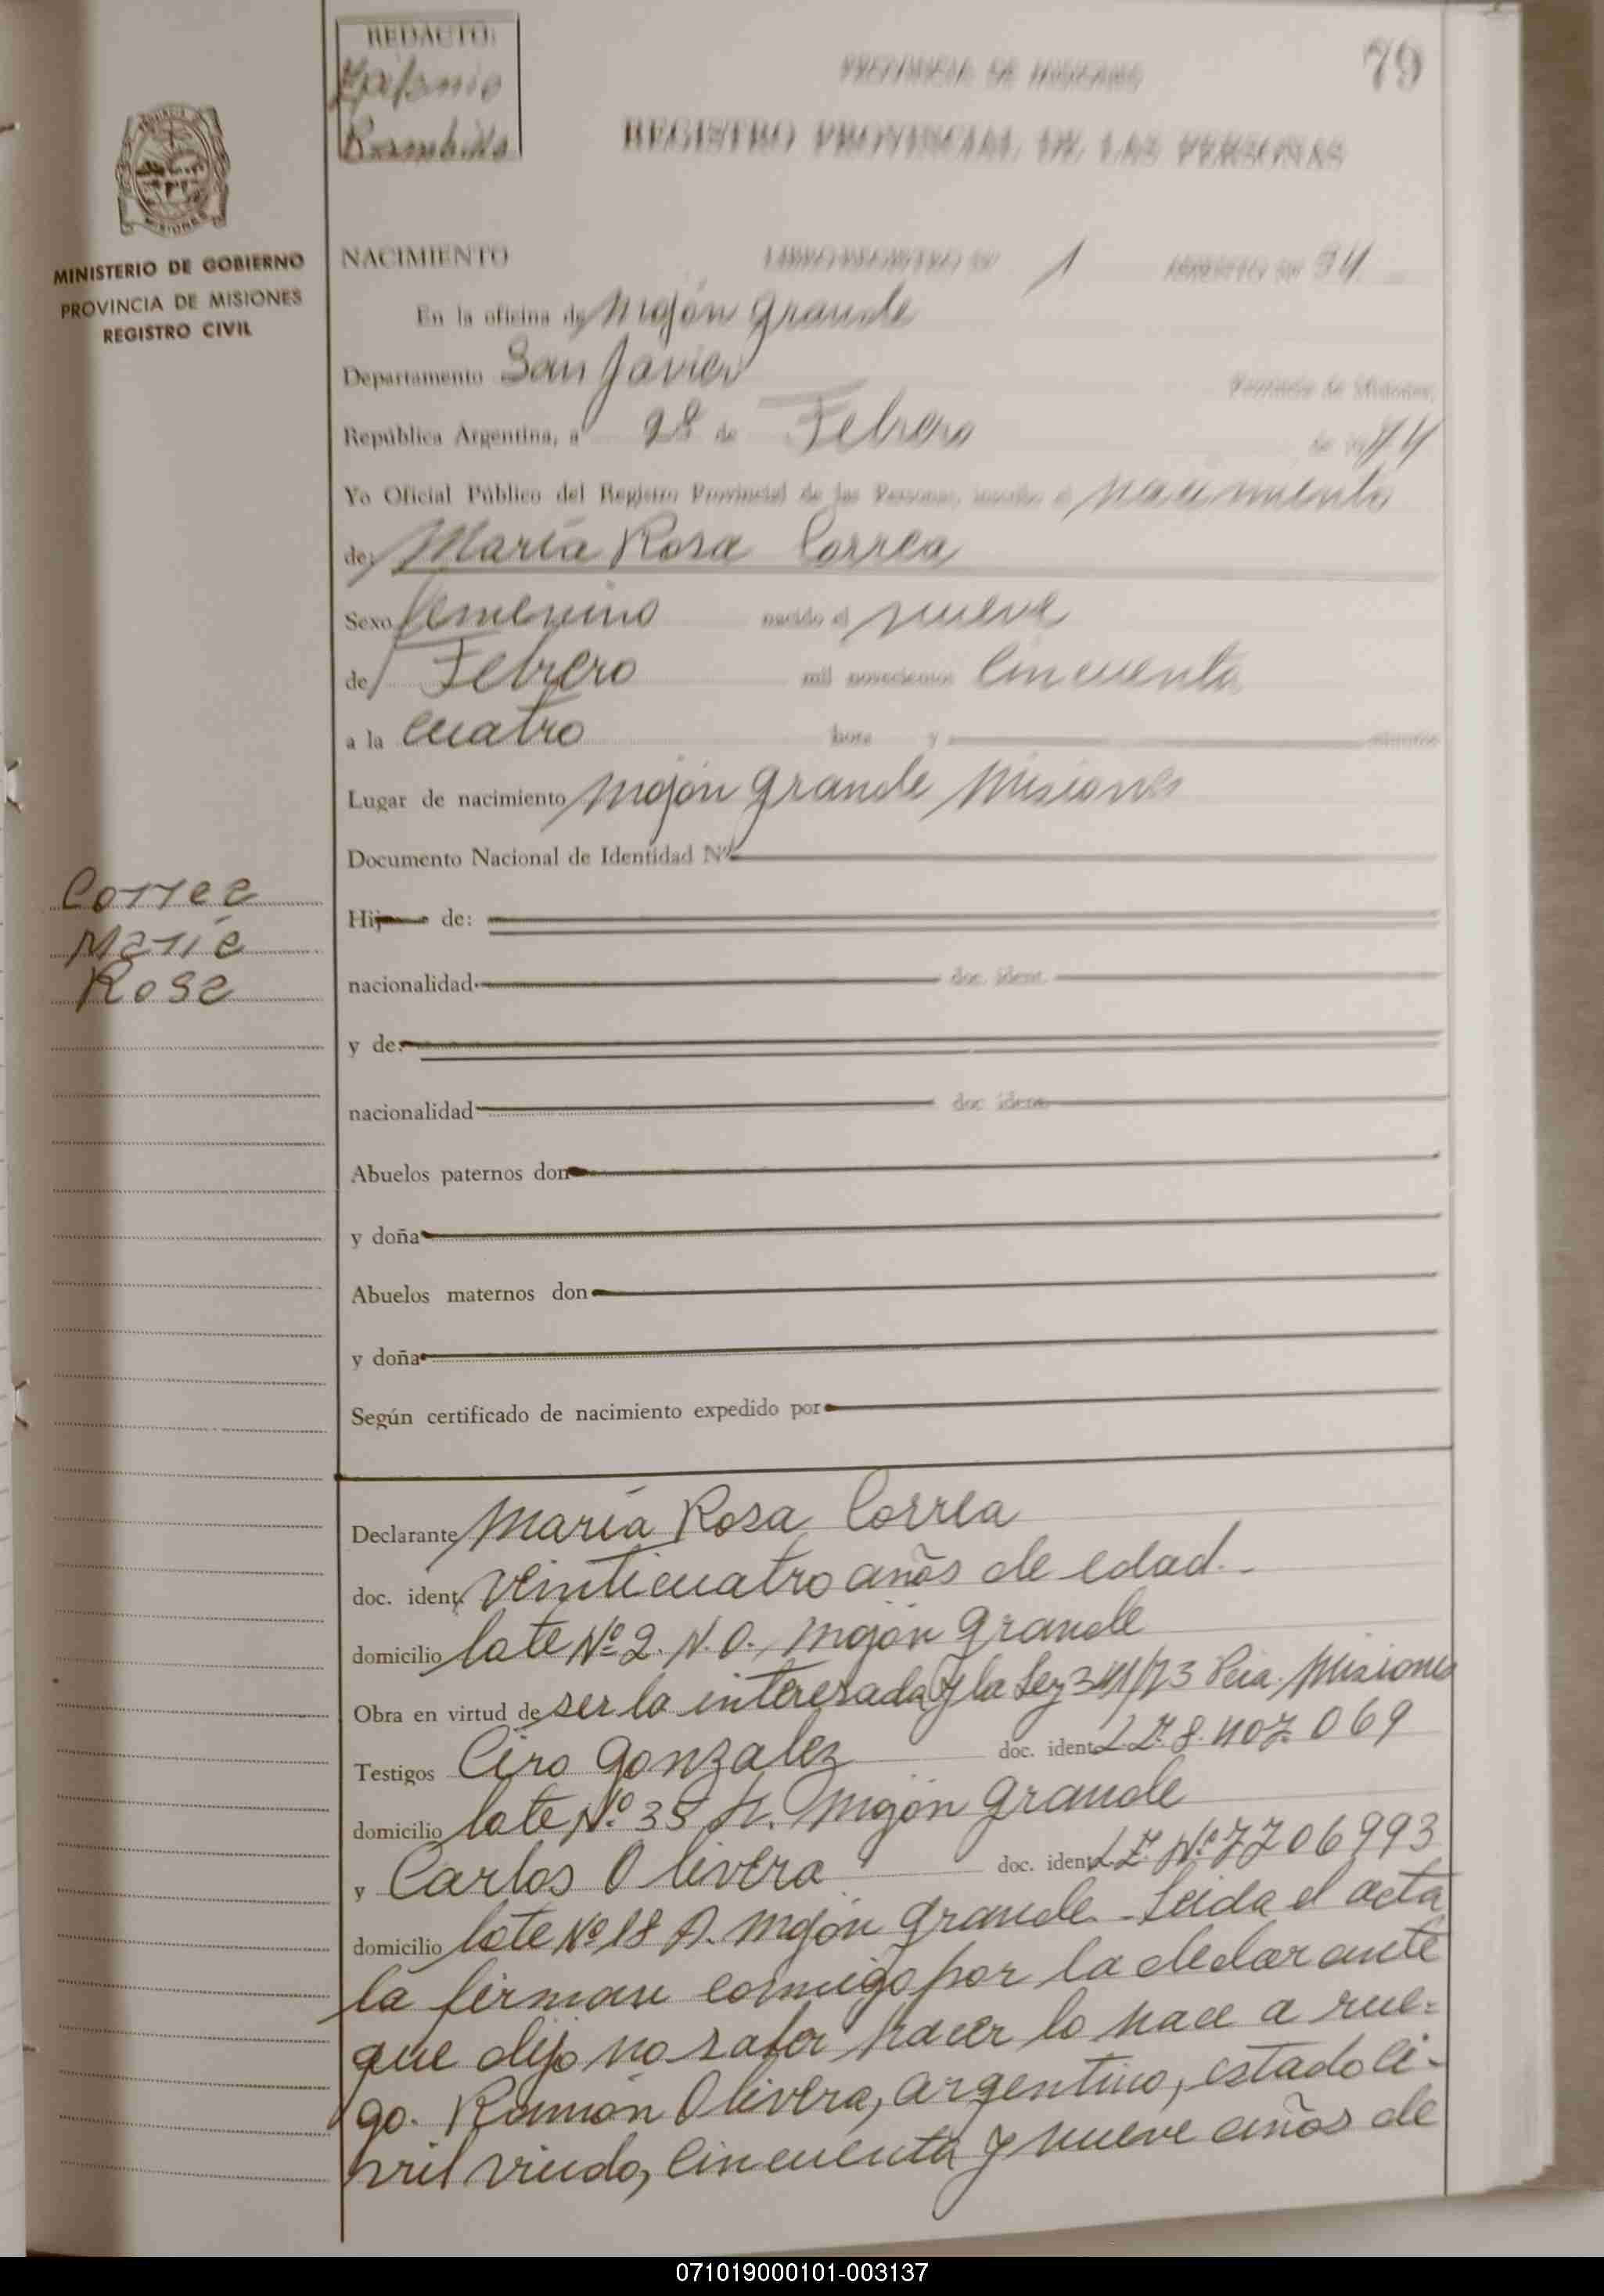 REDACTO:
79
PROVINCIA DE MISIONES
REGISTRO PROVINCIAL DE LAS PERSONAS
MISIONES
MINISTERIO DE GOBIERNO
PROVINCIA DE MISIONES
REGISTRO CIVIL
NACIMIENTO LIBRO REGISTRO Nº 1
En la oficina de Mojón Grande
Departamento San Javier Provincia de Misiones,
República Argentina, a 28 de Febrero de 19
Yo Oficial Público del Registro Provincial de las Personas, inscribo el nacimiento
de: María Rosa Correa
Sexo femenino nacido el nueve
de Febrero mil novecientos cincuenta
a la cuatro hora y minutos
Lugar de nacimiento Mojón Grande Misiones
Documento Nacional de Identidad Nº
Correa
María
Rosa
Hij de:
nacionalidad doc. ident.
y de:
nacionalidad doc. ident.
Abuelos paternos don
y doña
Abuelos maternos don
y doña
Según certificado de nacimiento expedido por
Declarante María Rosa Correa
doc. ident. veinticuatro años de edad.-
domicilio lote Nº 2. N.O., Mojón Grande
Obra en virtud de ser la interesada y la Ley Pcia. Misiones
Testigos Ciro Gonzalez doc. ident. 8.407.069
domicilio lote Nº 35 Mojón Grande
y Carlos Olivera doc. ident. Nº 7706993
domicilio lote Nº 18 A. Mojón Grande.- Leida el acta
la firman conmigo por la declarante
que dijo no saber hacer lo hace a rue=
go. Ramón Olivera, argentino, estado ci-
vil viudo, cincuenta y nueve años de
071019000101-003137